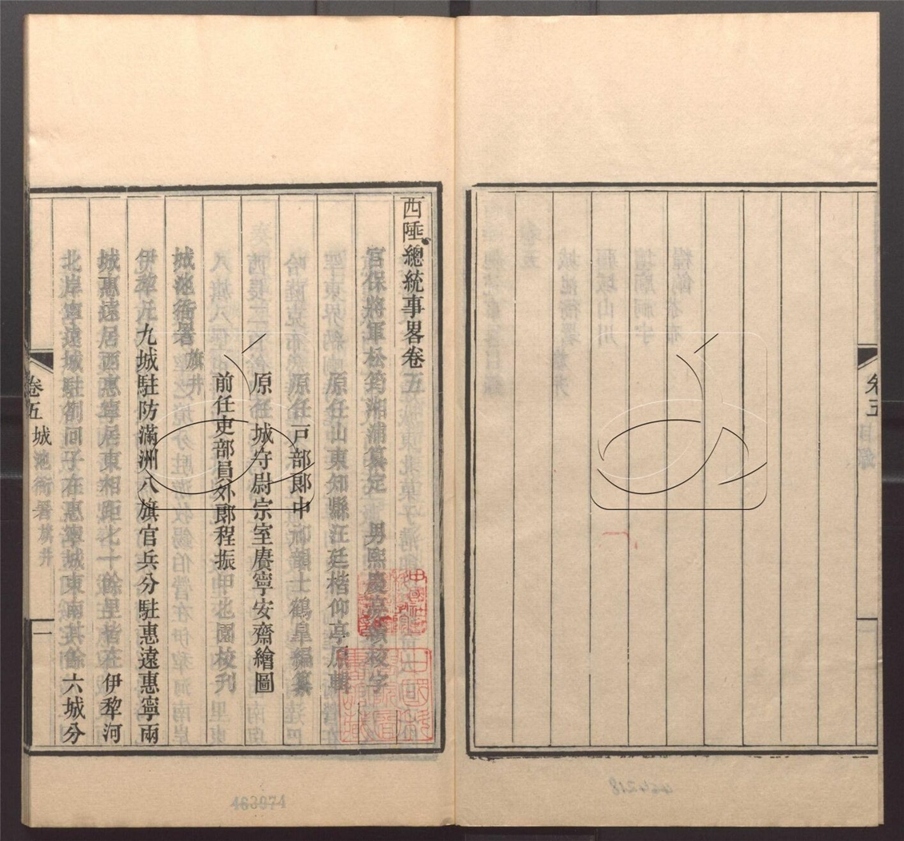 西陲總統事畧卷五
宮保將軍松筠湘浦纂定　男熙慶 校字
原任山東知縣汪廷楷仰亭原輯
原任戶部郎中 鶴皋編纂
原任 城守尉宗室賡寧安齋繪圖
前任吏部員外郎程振甲也園校刊
城池衙署旗井
伊犂九城駐防滿洲八旗官兵分駐惠遠惠寧兩
城惠遠居西惠寧居東相距七十餘里皆在伊犂河
北岸寧遠城駐劄回子在惠寧城東南其餘六城分
卷五 城池衙署旗井
一
卷五 目錄
463074
464218